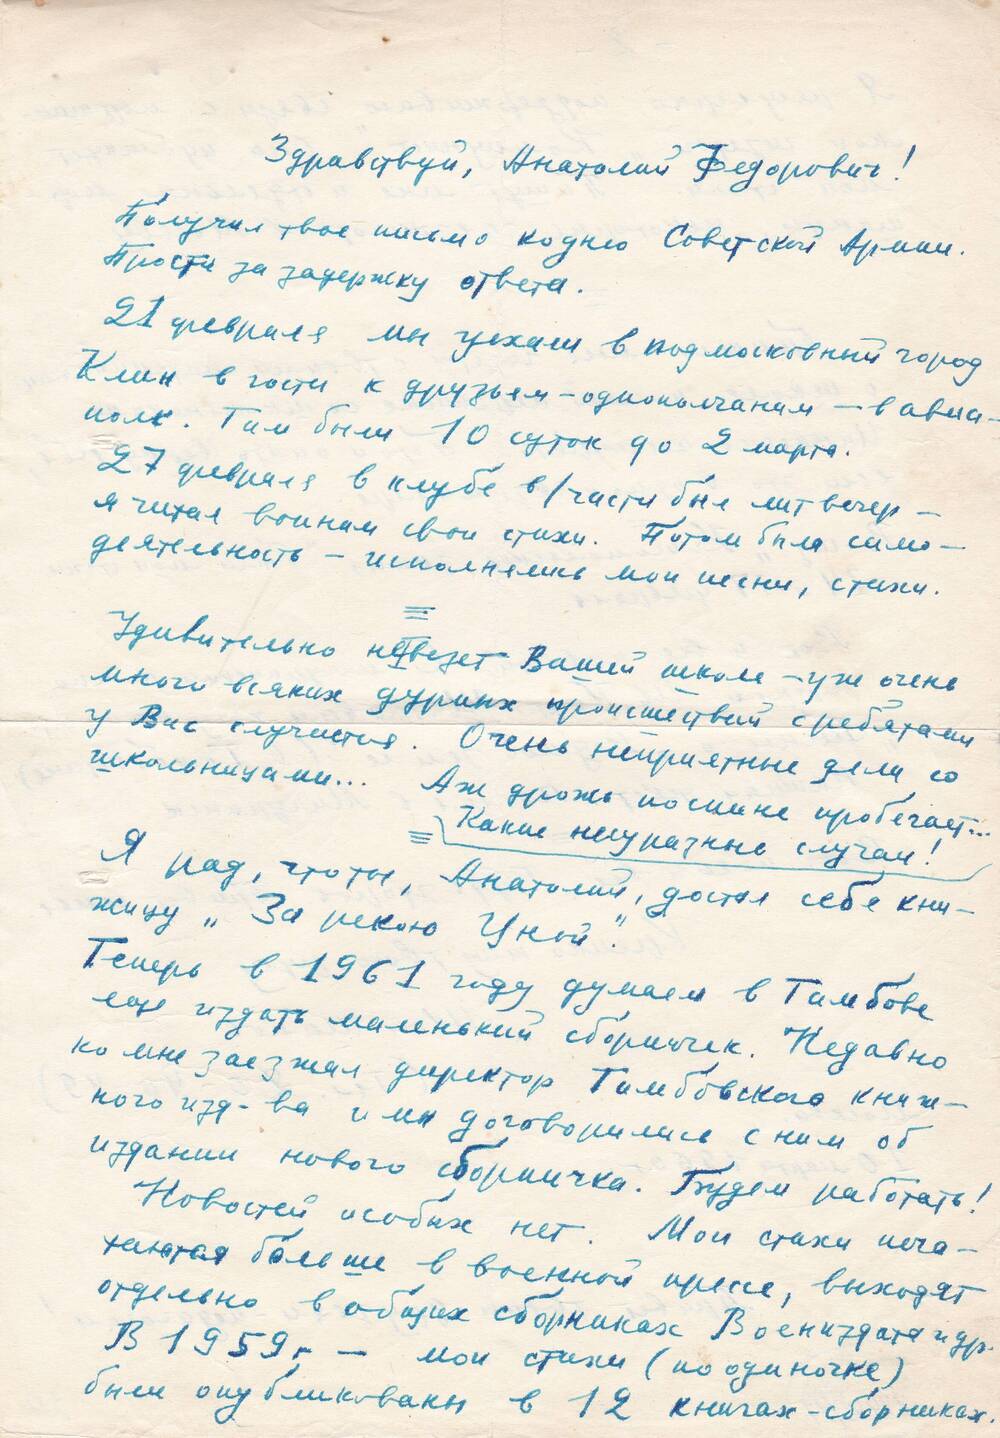 Здравствуй, Анатолий Федорович!
Получил твое письмо ко дню Советской Армии.
Прости за задержку ответа.
21 февраля мы уехали в подмосковный город
Клин в гости к друзьям-однополчанам – в авиа-
полк. Там были 10 суток до 2 марта.
27 февраля в клубе в/части был литвечер –
я читал воинам свои стихи. Потом была само-
деятельность – исполнялись мои песни, стихи.
Удивительно не везет Вашей школе – уж очень
много всяких дурных происшествий с ребятами
у Вас случается. Очень неприятные дела со
школьницами... Аж дрожь по спине пробегает...
Какие несуразные случаи!
Я рад, что ты, Анатолий, достал себе кни-
жицу „За рекою Цной".
Теперь в 1961 году думаем в Тамбове
еще издать маленький сборничек. Недавно
ко мне заезжал директор Тамбовского книж-
ного изд-ва и мы договорились с ним об
издании нового сборничка. Будем работать!
Новостей особых нет. Мои стихи печа-
таются больше в военной прессе, выходят
отдельно в общих сборниках Воениздата и др.
В 1959 г. – мои стихи (по одиночке)
были опубликованы в 12 книгах-сборниках.